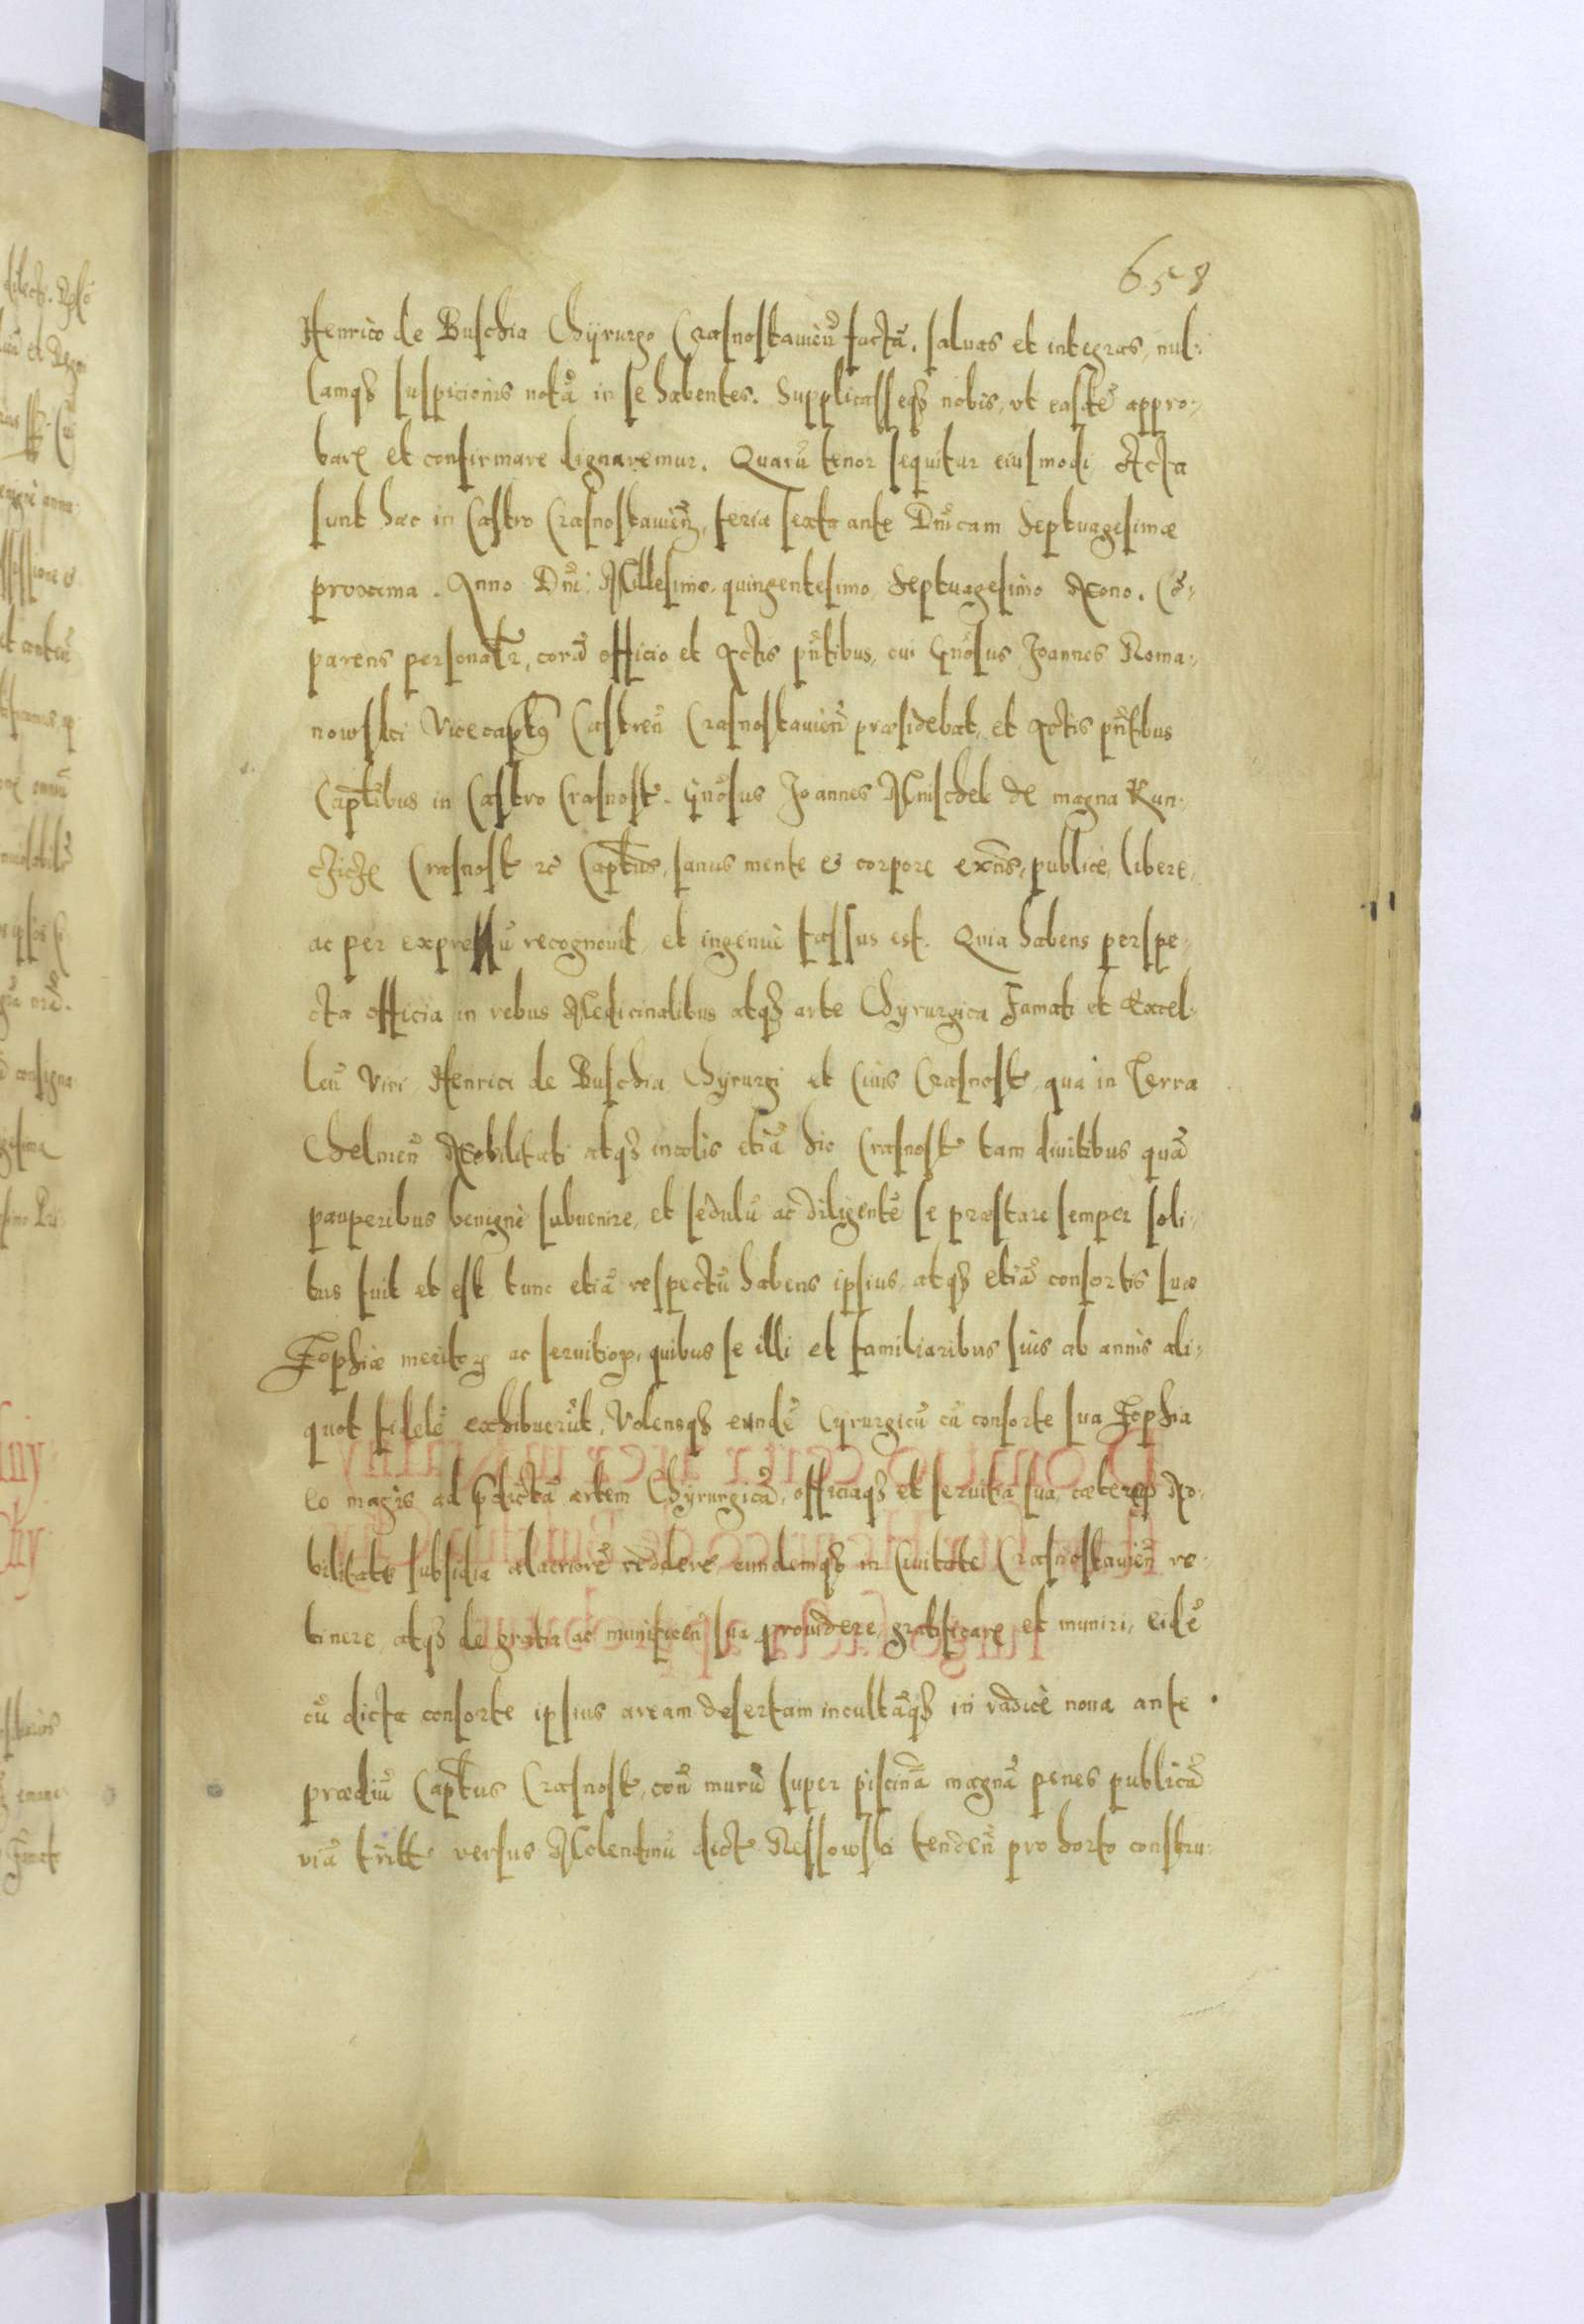 658
Henrico de Buschia Chÿrurgo Crasnostauieñ factã, saluas et integras, nul-
lamqȝ suspicionis notã in se habentes. Supplicasseqȝ nobis, vt easdẽ appro-
bare et confirmare dignaremur. Quarũ tenor sequitur eiusmodi, Acta
sunt hæc in Castro Crasnostauieñ, feria sexta ante Dñicam Septuagesimæ
proxima. Anno Dñi Millesimo quingentesimo Septuagesimo Nono. Cõ-
parens personalr, corã officio et Actis pñtibus, cui Gñosus Joannes Roma-
nowski Vicecaptꝰ Castreñ Crasnostauieñ præsidebat, et Actis pñtibus
Captibus in Castro Crasnost. Gñosus Joannes Mnischek de magna Kun-
czicze Crasnost ꝛc Captus, sanus mente et corpore exñs, publice, libere,
ac per expressũ recognouit, et ingenuè fassus est. Quia habens perspe-
cta officia in rebus Medicinalibus atqȝ arte Chyrurgica Famati et Excel-
leñ Viri Henrici de Buschia Chÿrurgi et Ciuis Crasnost, qua in Terra
Chelmeñ Nobilitati atqȝ incolis etiã hic Crasnost tam diuitibus quã
pauperibus benignè subuenire, et sedulũ ac diligentẽ se præstare semper soli-
tus fuit et est, tunc etiã respectũ habens ipsius, atqȝ etiã consortis suæ
Zophiæ meritoꝝ ac seruitioꝝ, quibus se illi et familiaribus suis ab annis ali-
quot fidelẽ exhibuerũt, Volensqȝ eundẽ Cyrurgicũ cũ consorte sua Zophia
eo magis ad p̃dictã artem Chÿrurgicã, officiaqȝ et seruitia sua, cæteraqȝ No-
bilitate subsidia alacriorẽ reddere, eundemqȝ in Ciuitate Crasnostauieñ re-
tinere, atqȝ de gratia ac munificeñ sua prouidere, gratificare et muniri, eidẽ
cũ dicta consorte ipsius aream desertam incultãqȝ in radice noua ante
prædiũ Captus Crasnost, coñ murũ super piscinã magnã penes publicã
viã versus Molendinũ dict Ressowski tendeñ pro horto constru-